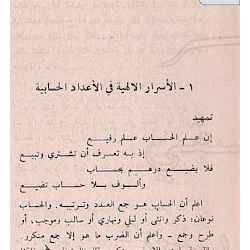 ١ - الأسرار الالهية في الأعداد الحسابية
تمهيد
إن علم الحساب علم رفيع
إذ به تعرف أن تشتري وتبيع
فلا يضيع درهم بحساب
وألوف بلا حساب تضيع
اعلم أن الحساب هو جمع العدد وترتيبه. والحساب
نوعان: ذكر وانثى أو ليلي ونهاري أو سالب وموجب، أو
طرح وجمع - واعلم أن الضرب ما هو إلا جمع متكرر.